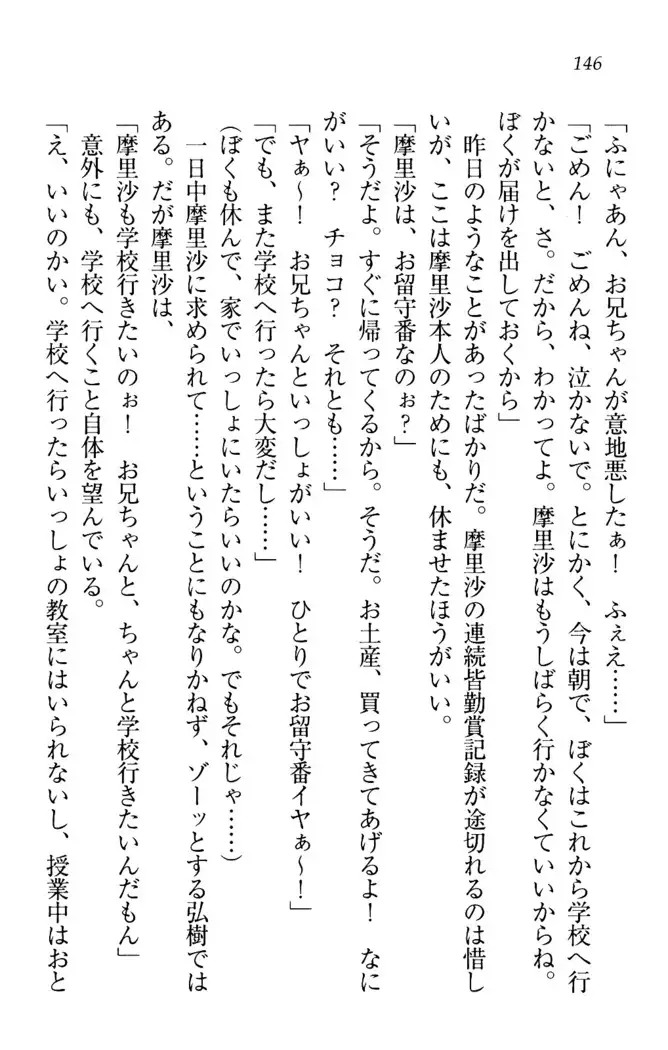 146
「ふにゃあん、お兄ちゃんが意地悪したぁ！　ふぇえ……」
「ごめん！　ごめんね、泣かないで。とにかく、今は朝で、ぼくはこれから学校へ行
かないと、さ。だから、わかってよ。摩里沙はもうしばらく行かなくていいからね。
ぼくが届けを出しておくから」
昨日のようなことがあったばかりだ。摩里沙の連続皆勤賞記録が途切れるのは惜し
いが、ここは摩里沙本人のためにも、休ませたほうがいい。
「摩里沙は、お留守番なのぉ？」
「そうだよ。すぐに帰ってくるから。そうだ。お土産、買ってきてあげるよ！　なに
がいい？　チョコ？　それとも……」
「ヤぁ〜！　お兄ちゃんといっしょがいい！　ひとりでお留守番イヤぁ〜！」
「でも、また学校へ行ったら大変だし……」
（ぼくも休んで、家でいっしょにいたらいいのかな。でもそれじゃ……）
一日中摩里沙に求められて……ということにもなりかねず、ゾーッとする弘樹では
ある。だが摩里沙は、
「摩里沙も学校行きたいのぉ！　お兄ちゃんと、ちゃんと学校行きたいんだもん」
意外にも、学校へ行くこと自体を望んでいる。
「え、いいのかい。学校へ行ったらいっしょの教室にはいられないし、授業中はおと